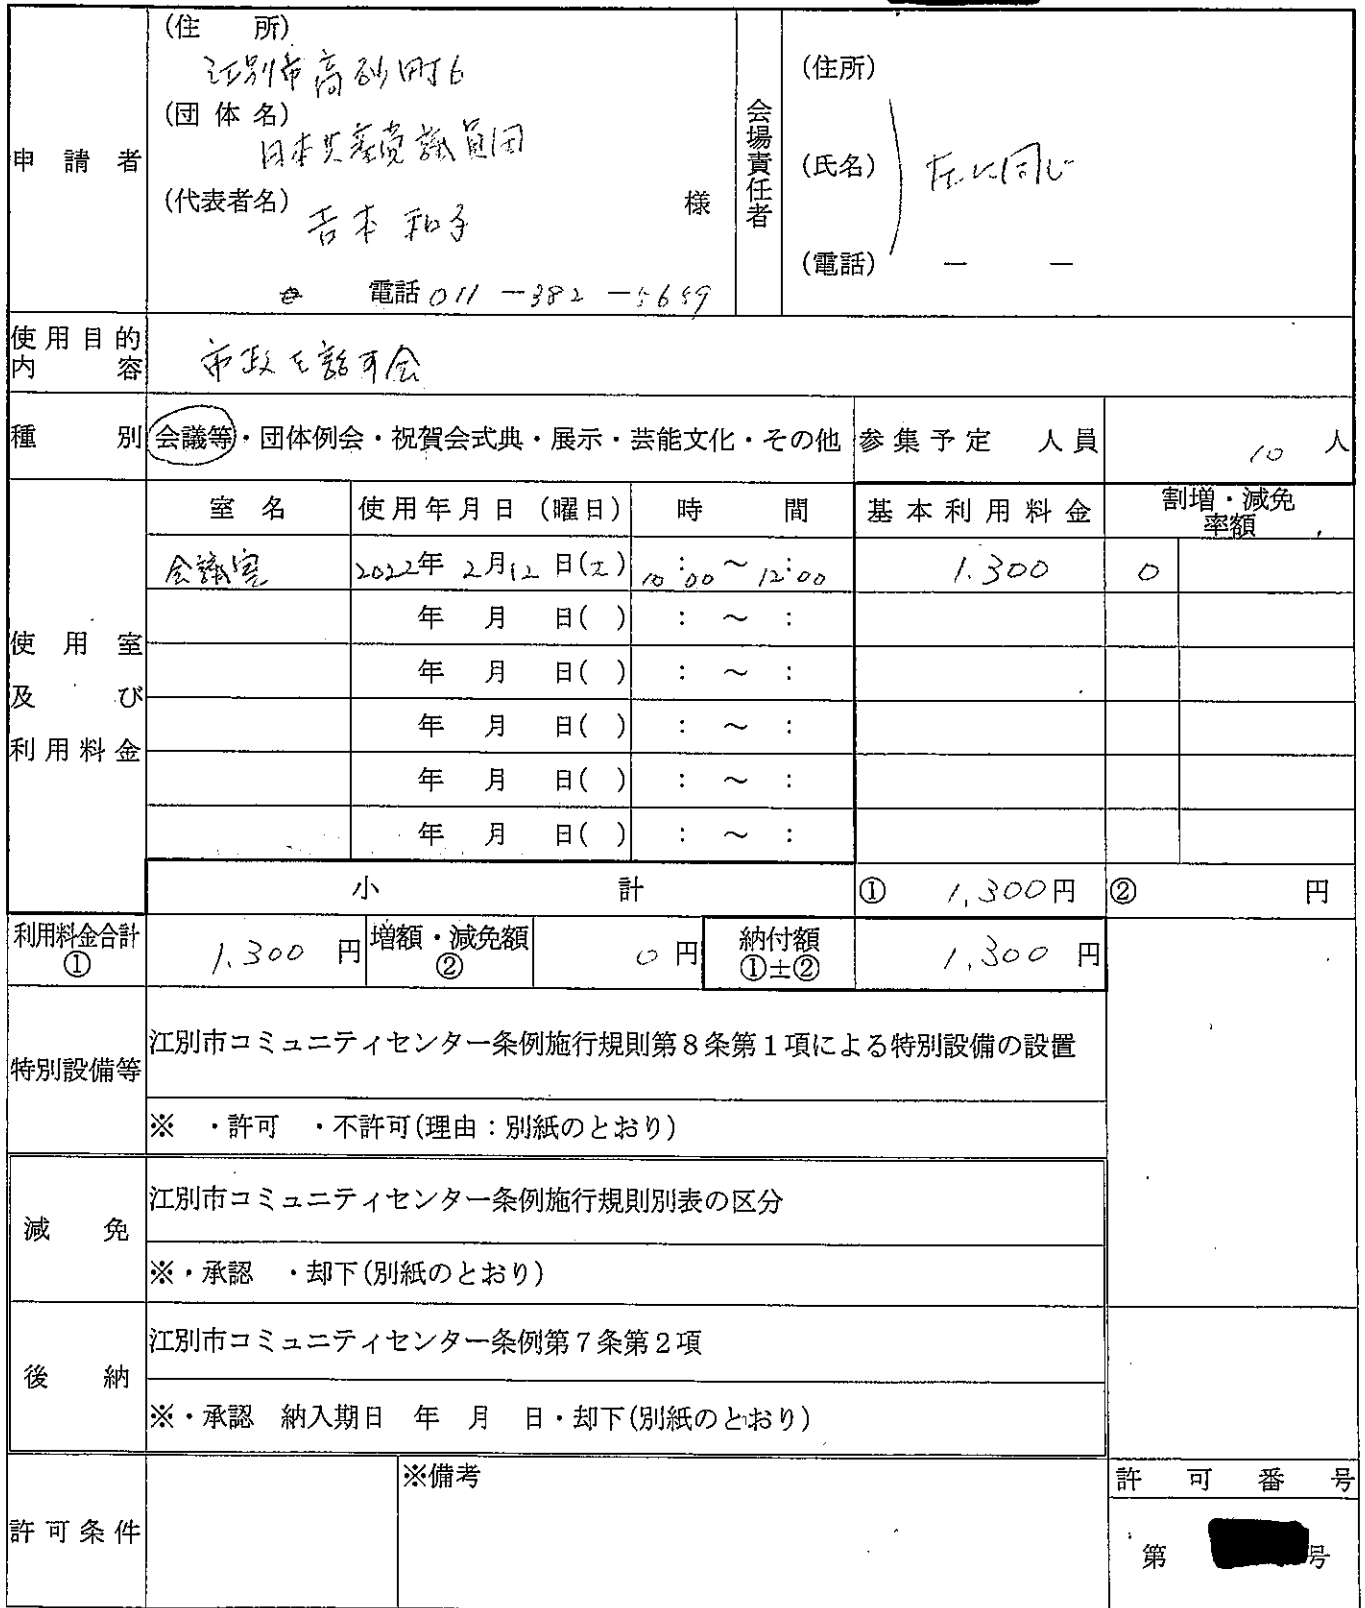 申請者
(住　所)
江別市高砂町6
(団体名)
日本共産党議員団
(代表者名)
吉本 和子 様
電話 011 － 382 － 5659
会場責任者
(住所)
(氏名) 左に同じ
(電話) － －
使用目的内容
市政を話す会
種別
会議等・団体例会・祝賀会式典・展示・芸能文化・その他
参集予定人員
10 人
使用室及び利用料金
室名 使用年月日(曜日) 時間 基本利用料金 割増・減免率額
会議室 2022年 2月12日(土) 10:00 ～ 12:00 1.300 0
年 月 日( ) : ～ :
年 月 日( ) : ～ :
年 月 日( ) : ～ :
年 月 日( ) : ～ :
年 月 日( ) : ～ :
小計 ① 1,300円 ② 円
利用料金合計① 1.300 円 増額・減免額② 0円 納付額①±② 1,300 円
特別設備等
江別市コミュニティセンター条例施行規則第8条第1項による特別設備の設置
※ ・許可 ・不許可(理由：別紙のとおり)
減免
江別市コミュニティセンター条例施行規則別表の区分
※・承認 ・却下(別紙のとおり)
後納
江別市コミュニティセンター条例第7条第2項
※・承認 納入期日 年 月 日・却下(別紙のとおり)
許可条件
※備考
許可番号
第 号